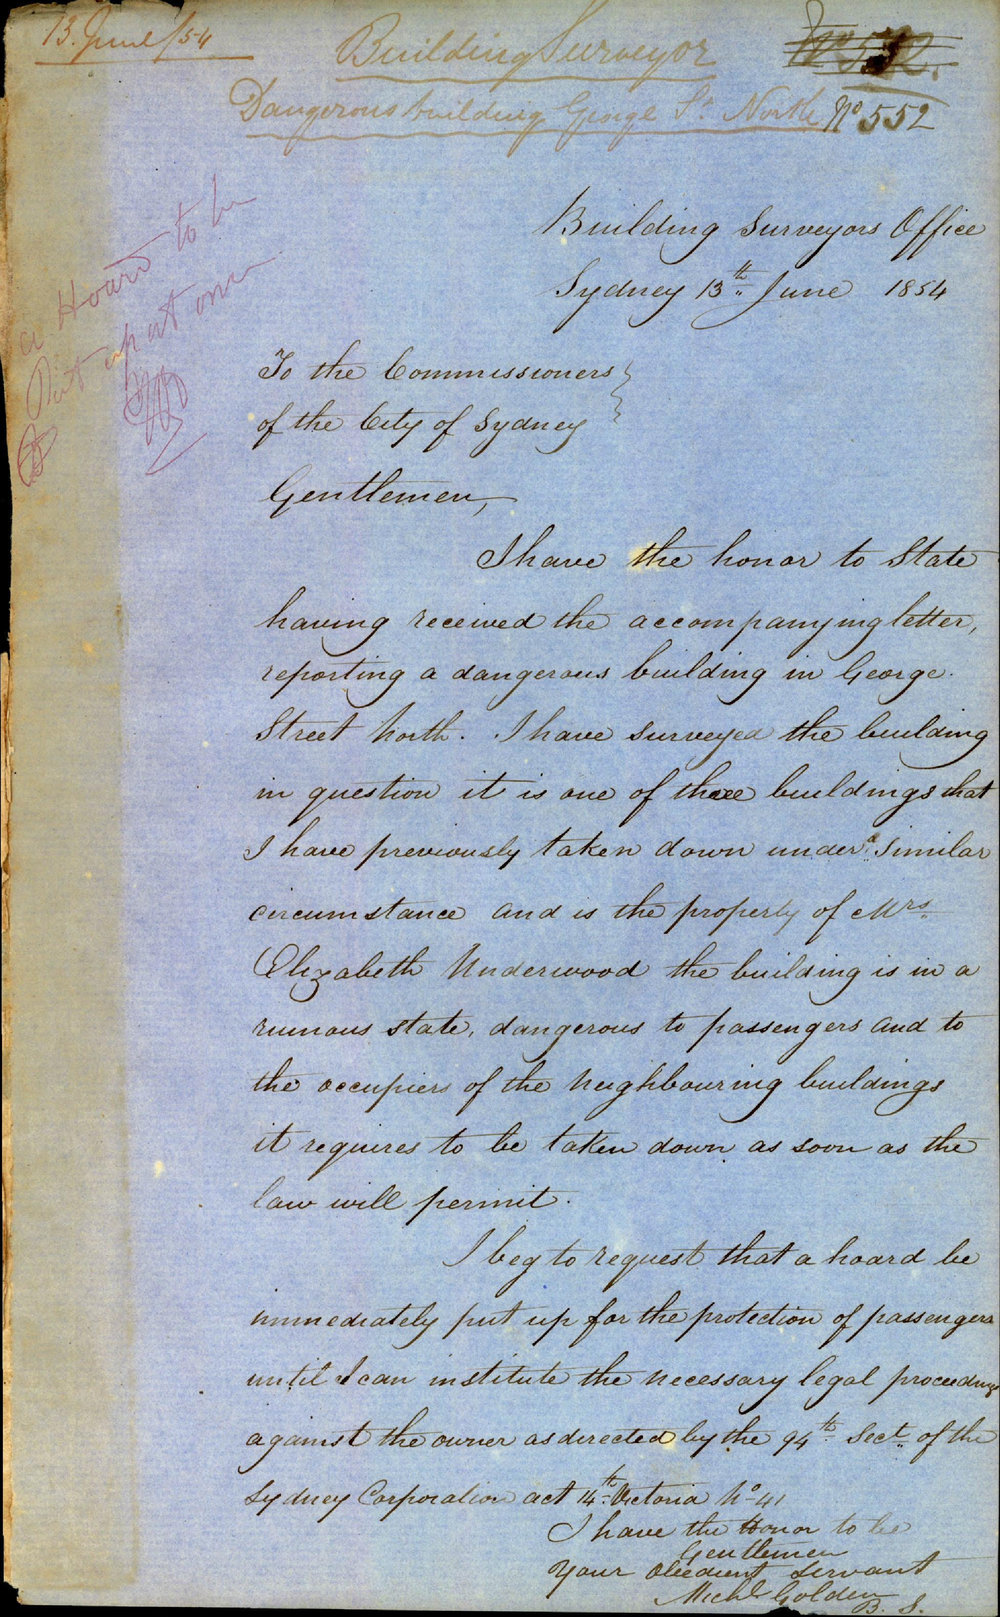 13. June/54
Building Surveyor
Dangerous building George St. North No 552
a Hoard to be
Put up at once
Building Surveyors Office
Sydney 13th June 1854
To the Commissioners
of the City of Sydney
Gentlemen,
I have the honor to State
having received the accompanying letter,
reporting a dangerous building in George
Street North. I have surveyed the building
in question it is one of three buildings that
I have previously taken down under a similar
circumstance and is the property of Mrs.
Elizabeth Underwood the building is in a
ruinous state, dangerous to passengers and to
the occupiers of the Neighbouring buildings
it requires to be taken down as soon as the
law will permit.
I beg to request that a hoard be
immediately put up for the protection of passengers
until I can institute the necessary legal proceedings
against the owner as directed by the 94th Sect. of the
Sydney Corporation act 14th Victoria No 41
I have the Honor to be
Gentlemen
Your Obedient Servant
Michl Golden
B. S.